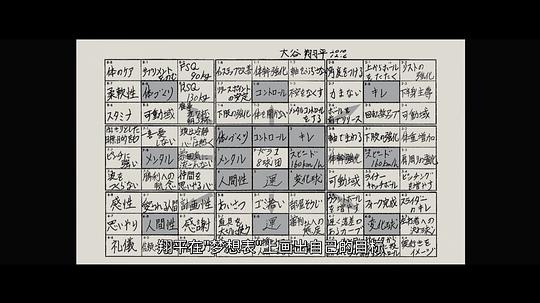 大谷 翔平
体のケア サプリメントをのむ FSQ 90kg インステップ改善 体幹強化 軸をぶらさない 角度をつける 上からボールをたたく リストの強化
柔軟性 体づくり RSQ 130kg リリースポイントの安定 コントロール 不安をなくす 力まない キレ 下半身主導
スタミナ 可動域 下肢の強化 体を開かない メンタルコントロールをする ボールを前でリリース 回転数アップ 可動域
一喜一憂しない 頭は冷静に心は熱く 体づくり コントロール キレ 軸でまわる 下肢の強化 体重増加
ピンチに強い メンタル 雰囲気に流されない メンタル ドラ1 8球団 スピード160km/h 体幹強化 スピード160km/h 肩周りの強化
波をつくらない 勝利への執念 仲間を思いやる心 人間性 運 変化球 可動域 ライナーキャッチボール ピッチングを増やす
感性 愛される人間 計画性 あいさつ ゴミ拾い 部屋そうじ フォーク完成 スライダーのキレ
思いやり 人間性 感謝 道具を大切に使う 運 審判さんへの態度 遅く落差のあるカーブ 変化球 左打者への決め球
礼儀 イメージ
翔平在“梦想表”上画出自己的目标